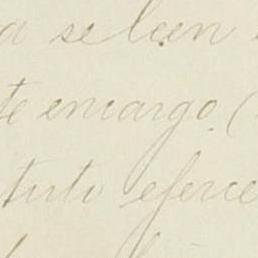 a se lean
te encargo (
tuto eferce